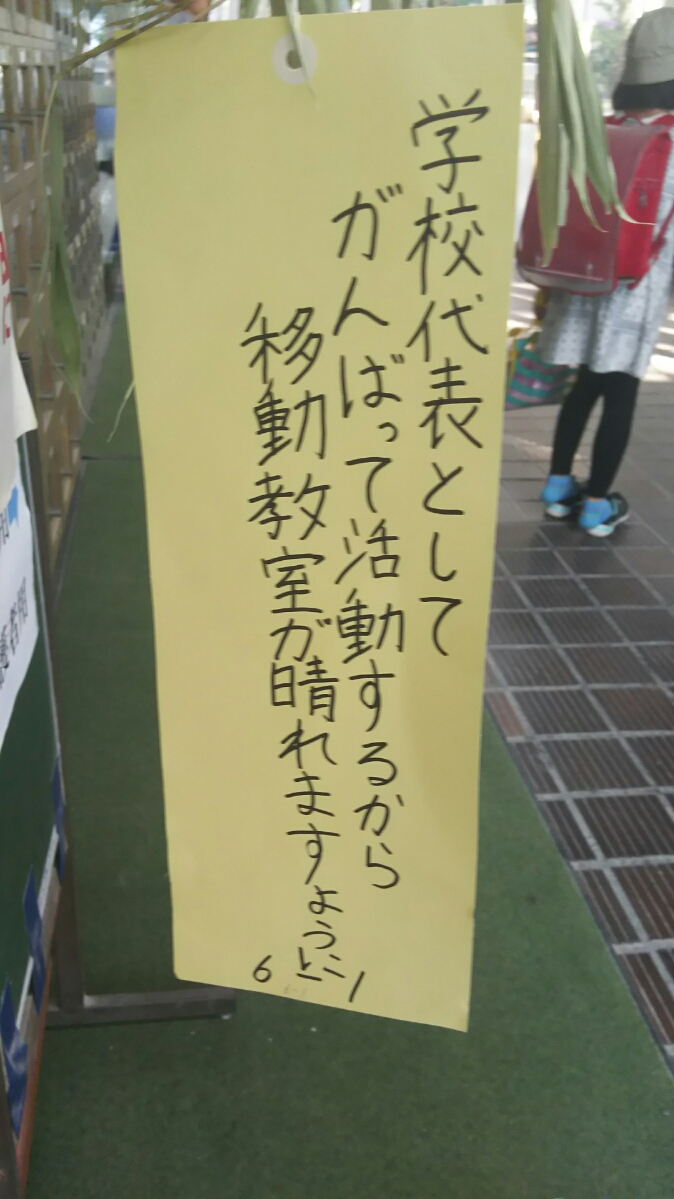 学校代表として
がんばって活動するから
移動教室が晴れますように
6-1